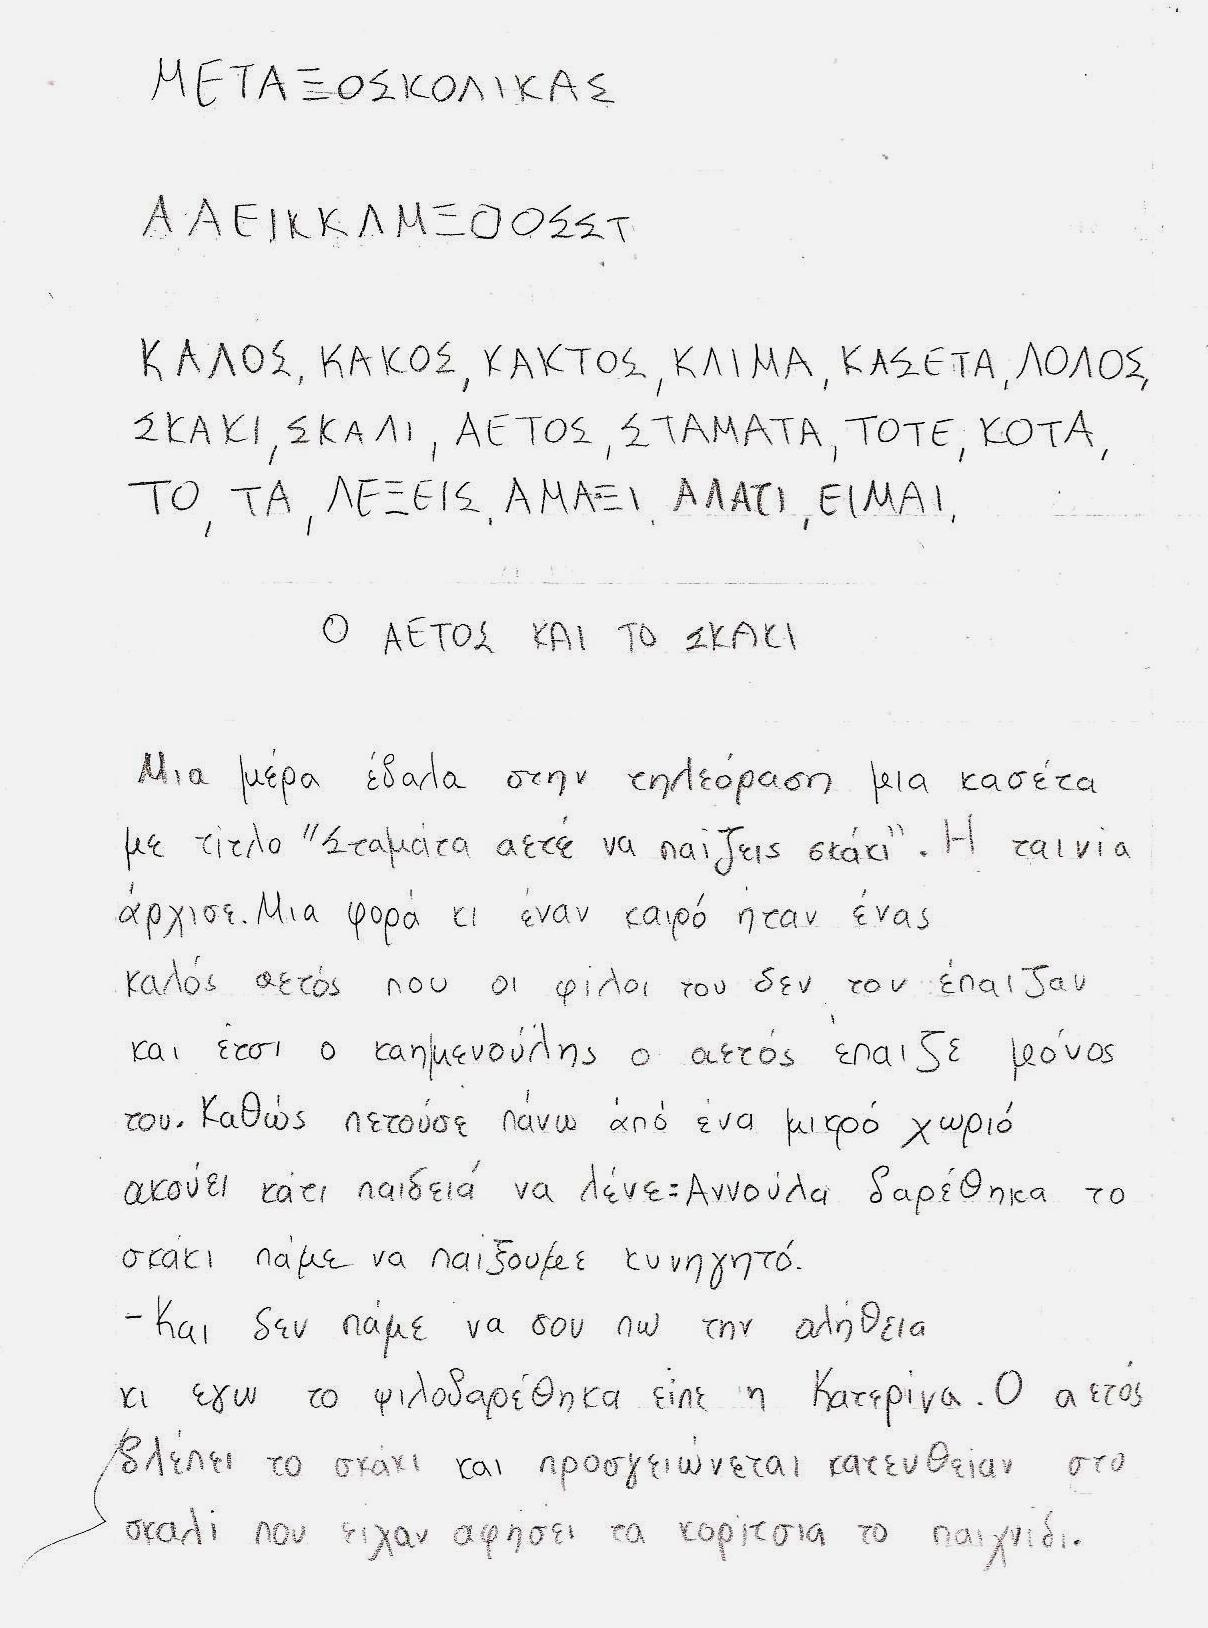 ΜΕΤΑΞΟΣΚΟΛΙΚΑΣ
ΑΑΕΙΚΚΛΜΞΟΟΣΣΤ
ΚΑΛΟΣ, ΚΑΚΟΣ, ΚΑΚΤΟΣ, ΚΛΙΜΑ, ΚΑΣΕΤΑ, ΛΟΛΟΣ,
ΣΚΑΚΙ, ΣΚΑΛΙ, ΑΕΤΟΣ, ΣΤΑΜΑΤΑ, ΤΟΤΕ, ΚΟΤΑ,
ΤΟ, ΤΑ, ΛΕΞΕΙΣ, ΑΜΑΞΙ, ΑΛΑΤΙ, ΕΙΜΑΙ,
Ο ΑΕΤΟΣ ΚΑΙ ΤΟ ΣΚΑΚΙ
Μια μέρα έβαλα στην τηλεόραση μια κασέτα
με τίτλο "Σταμάτα αετέ να παίζεις σκάκι". Η ταινία
άρχισε. Μια φορά κι έναν καιρό ήταν ένας
καλός αετός που οι φίλοι του δεν τον έπαιζαν
και έτσι ο καημενούλης ο αετός έπαιζε μόνος
του. Καθώς πετούσε πάνω από ένα μικρό χωριό
ακούει κάτι παιδειά να λένε: Αννούλα βαρέθηκα το
σκάκι πάμε να παίξουμε κυνηγητό.
- Και δεν πάμε να σου πω την αλήθεια
κι εγω το ψιλοβαρέθηκα είπε η Κατερίνα. Ο αετός
βλέπει το σκάκι και προσγειώνεται κατευθείαν στο
σκαλί που είχαν αφήσει τα κορίτσια το παιχνίδι.